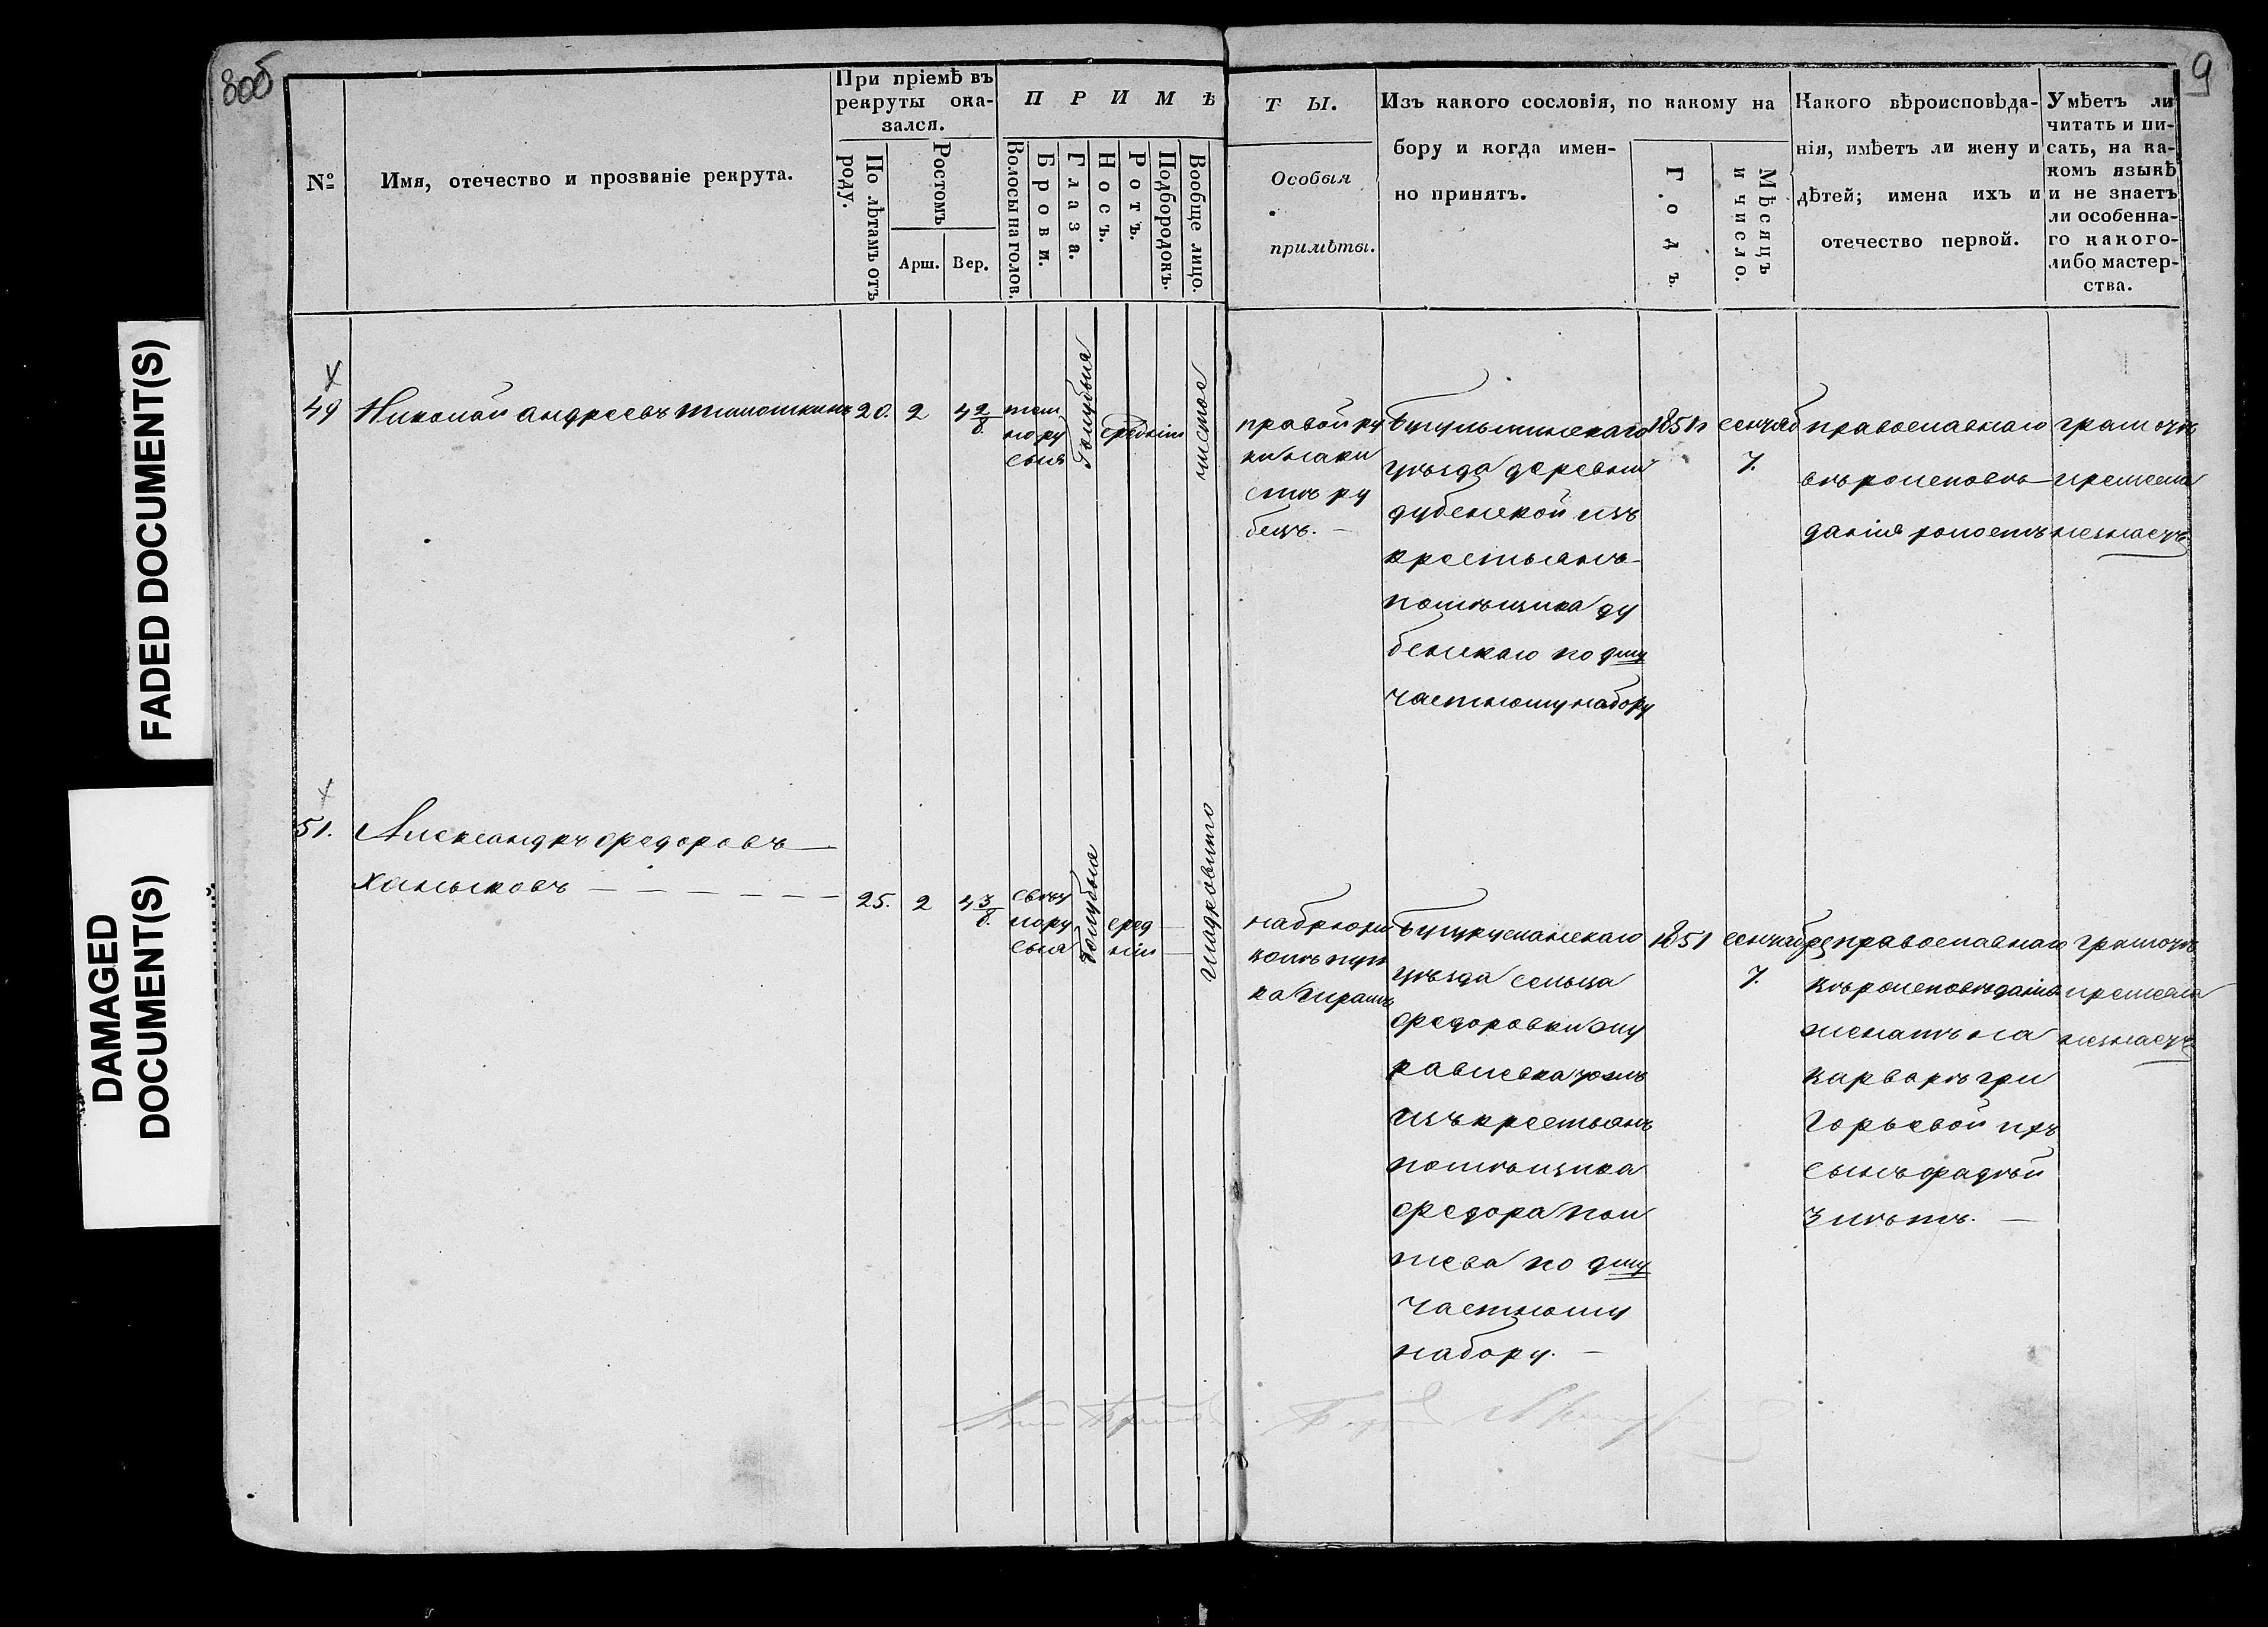 8об
9
При пріемѣ въ
рекруты ока-
зался.
П Р И М Ѣ
Т Ы.
№
Имя, отечество и прозваніе рекрута.
По лѣтамъ отъ
роду.
Ростомъ
Арш.
Вер.
Волосы на голов.
Брови.
Глаза.
Носъ.
Ротъ.
Подбородокъ.
Вообще лицо.
Особыя
примѣты.
Изъ какого сословія, по какому на
бору и когда имен-
но принятъ.
Годъ.
Мѣсяцъ
и число.
Какого вѣроисповѣда-
нія, имѣетъ ли жену и
дѣтей; имена ихъ и
отечество первой.
Умѣетъ ли
читать и пи-
сать, на ка-
комъ языкѣ
и не знаетъ
ли особенна-
го какого-
либо мастер-
ства.
49
Николай андреевъ тимошкинъ
20.
2
4 2/8.
тем
нору
сыя
Голубыя
средніи
чистое
правой ру
ки на ки
стѣ ру
бецъ. —
Бугульминскаго
уѣзда деревни
дубенской изъ
крестьянъ
помѣщика ду
бенскаго по 9му
частному набору
1851
сентяб
7.
православнаго
вѣроисповѣ
данія холостъ
грамотѣ
ремесла
незнаетъ.
51.
Александръ федоровъ
Ханыковъ
25.
2
4 3/8.
свѣт
лору
сыя
Голубыя
сред
ніи
на брюхѣ
Бугурусланскаго
уѣзда сельца
федоровки жу
равлевка тожъ
изъ крестьянъ
помѣщика
федора
по 9му
частному
набору. —
1851
сентября
7.
православнаго
вѣроисповѣданія
женатъ на
варварѣ гри
горьевой у нихъ
сынъ фадѣй
3 лѣтъ. —
грамотѣ
ремесла
незнаетъ
FADED DOCUMENT(S)
DAMAGED
DOCUMENT(S)